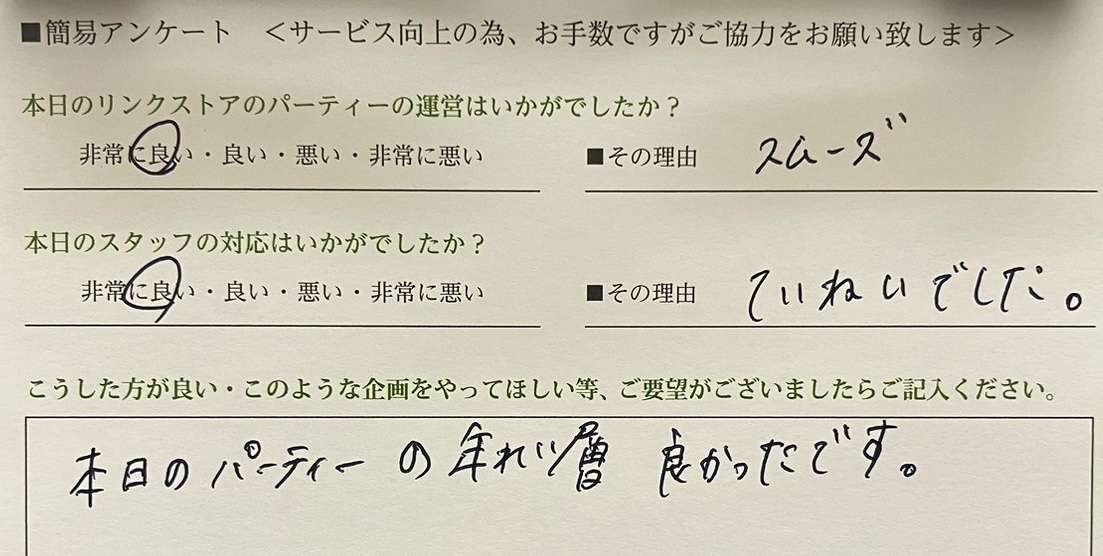 ■簡易アンケート　＜サービス向上の為、お手数ですがご協力をお願い致します＞
本日のリンクストアのパーティーの運営はいかがでしたか？
非常に良い・良い・悪い・非常に悪い　■その理由　スムーズ
本日のスタッフの対応はいかがでしたか？
非常に良い・良い・悪い・非常に悪い　■その理由　ていねいでした。
こうした方が良い・このような企画をやってほしい等、ご要望がございましたらご記入ください。
本日のパーティーの年れい層 良かったです。